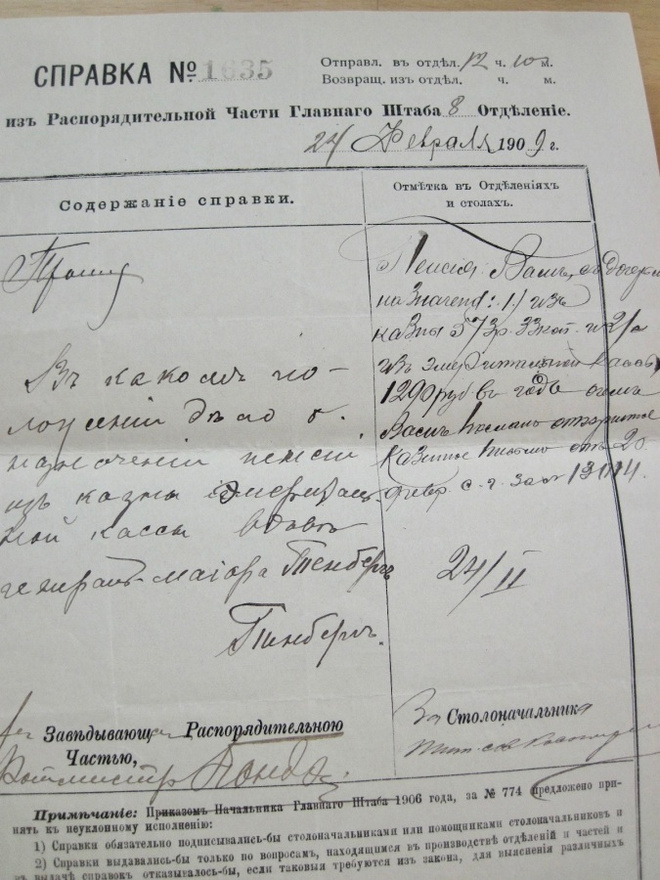 СПРАВКА № 1635
Отправл. въ отдѣл. 12 ч. 10 м.
Возвращ. изъ отдѣл. ч. м.
изъ Распорядительной Части Главнаго Штаба 8 Отдѣленіе.
24 Февраля 1909 г.
Содержаніе справки.
Прошу
Въ какомъ по-
ложеніи дѣло о
назначеніи пенсіи
изъ казны и эмеритал-
ной кассы вдовѣ
генералъ-маіора Тенбергъ
Тенбергъ.
Отмѣтка въ Отдѣленіяхъ
и столахъ.
Пенсія Вамъ, съ дочерью
назначена: 1) изъ
казны 573 р. 33 коп. и 2) а
изъ эмеритальной кассы
1290 руб въ годъ о чемъ
Вамъ послано открытое
казенное письмо отъ 20
февр. с. г. за № 13014.
24/II
За Столоначальника
Завѣдывающ Распорядительною
Частью,
Ротмистръ
Примѣчаніе: Приказомъ Начальника Главнаго Штаба 1906 года, за № 774 предложено при-
нять къ неуклонному исполненію:
1) Справки обязательно подписывались-бы столоначальниками или помощниками столоначальниковъ и
2) Справки выдавались-бы только по вопросамъ, находящимся въ производствѣ отдѣленій и частей и
въ выдачѣ справокъ отказывалось-бы, если таковыя требуются изъ закона, для выясненія различныхъ